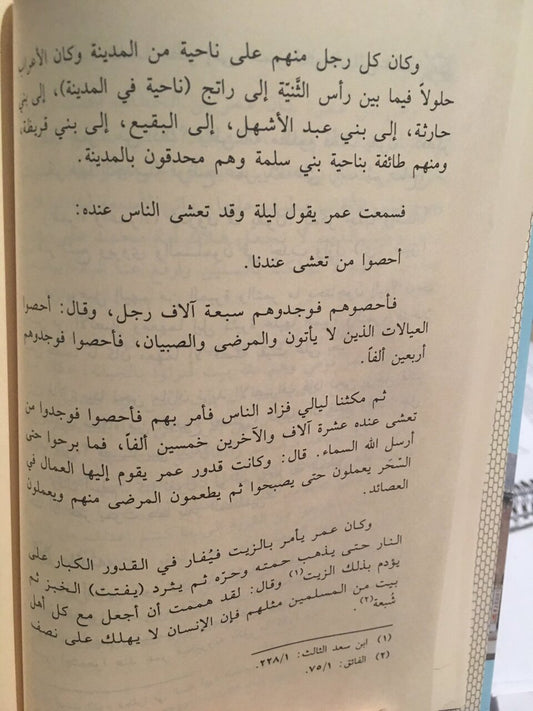 وكان كل رجل منهم على ناحية من المدينة وكان الأعراب
حلولاً فيما بين رأس الثَّنيّة إلى راتج (ناحية في المدينة)، إلى بني
حارثة، إلى بني عبد الأشهل، إلى البقيع، إلى بني قريظة،
ومنهم طائفة بناحية بني سلمة وهم محدقون بالمدينة.
فسمعت عمر يقول ليلة وقد تعشى الناس عنده:
أحصوا من تعشى عندنا.
فأحصوهم فوجدوهم سبعة آلاف رجل، وقال: أحصوا
العيالات الذين لا يأتون والمرضى والصبيان، فأحصوا فوجدوهم
أربعين ألفاً.
ثم مكثنا ليالي فزاد الناس فأمر بهم فأحصوا فوجدوا من
تعشى عنده عشرة آلاف والآخرين خمسين ألفاً، فما برحوا حتى
أرسل الله السماء. قال: وكانت قدور عمر يقوم إليها العمال في
السَّحَر يعملون حتى يصبحوا ثم يطعمون المرضى منهم ويعملون
العصائد.
وكان عمر يأمر بالزيت فيُفار في القدور الكبار على
النار حتى يذهب حمته وحرّه ثم يثرد (يفتت) الخبز ثم
يؤدم بذلك الزيت(١) وقال: لقد هممت أن أجعل مع كل أهل
بيت من المسلمين مثلهم فإن الإنسان لا يهلك على نصف
شُبعة(٢).
(١) ابن سعد الثالث: ٢٢٨/١.
(٢) الفائق: ٧٥/١.